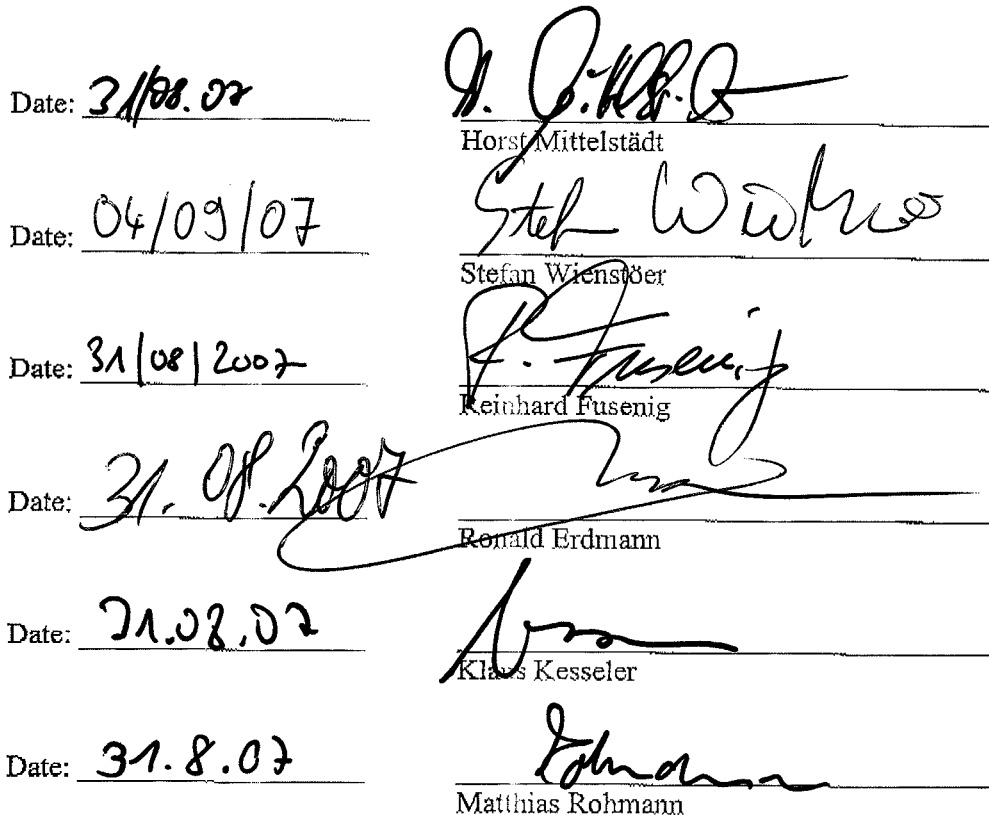 Date: 31/08.07
Horst Mittelstädt
Date: 04/09/07 Stefan
Stefan Wienstöer
Date: 31/08/2007 R. Fusenig
Reinhard Fusenig
Date: 31.08.2007
Ronald Erdmann
Date: 31.08.07
Klaus Kesseler
Date: 31.8.07
Matthias Rohmann